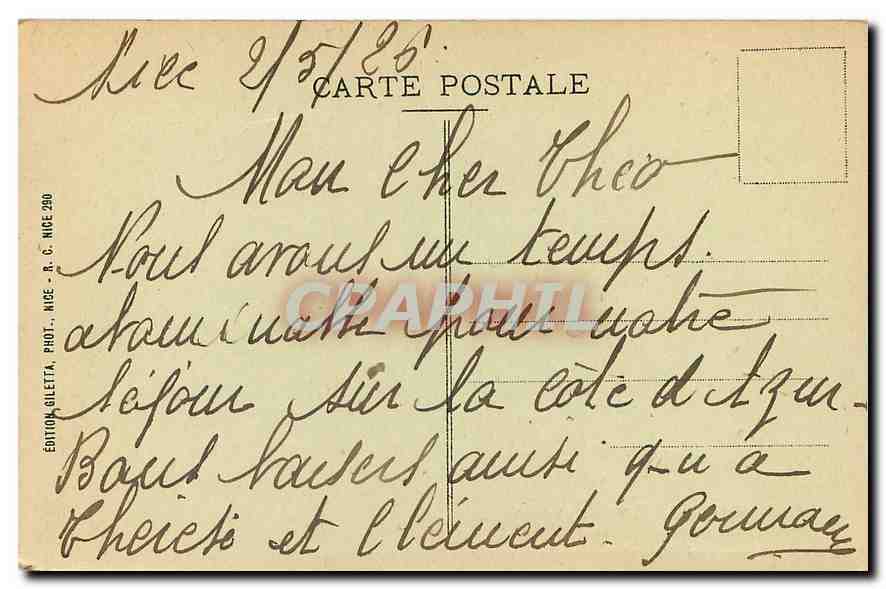 Nice 2/5/26.
CARTE POSTALE
Mon cher Théo
Nous avons un temps
abominable pour notre
séjour sur la côte d'Azur.
Bons baisers ainsi qu'a
Therese et Clément. Germain
ÉDITION GILETTA, PHOT., NICE - R. C. NICE 290
CPAPHIL